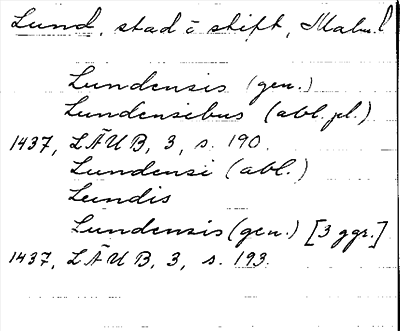 Lund, stad o stift, Malm. l
Lundensis (gen.)
Lundensibus (abl. pl.)
1437, LÄUB, 3, s. 190.
Lundensi (abl.)
Lundis
Lundensis (gen.) [3 ggr.]
1437, LÄUB, 3, s. 193.